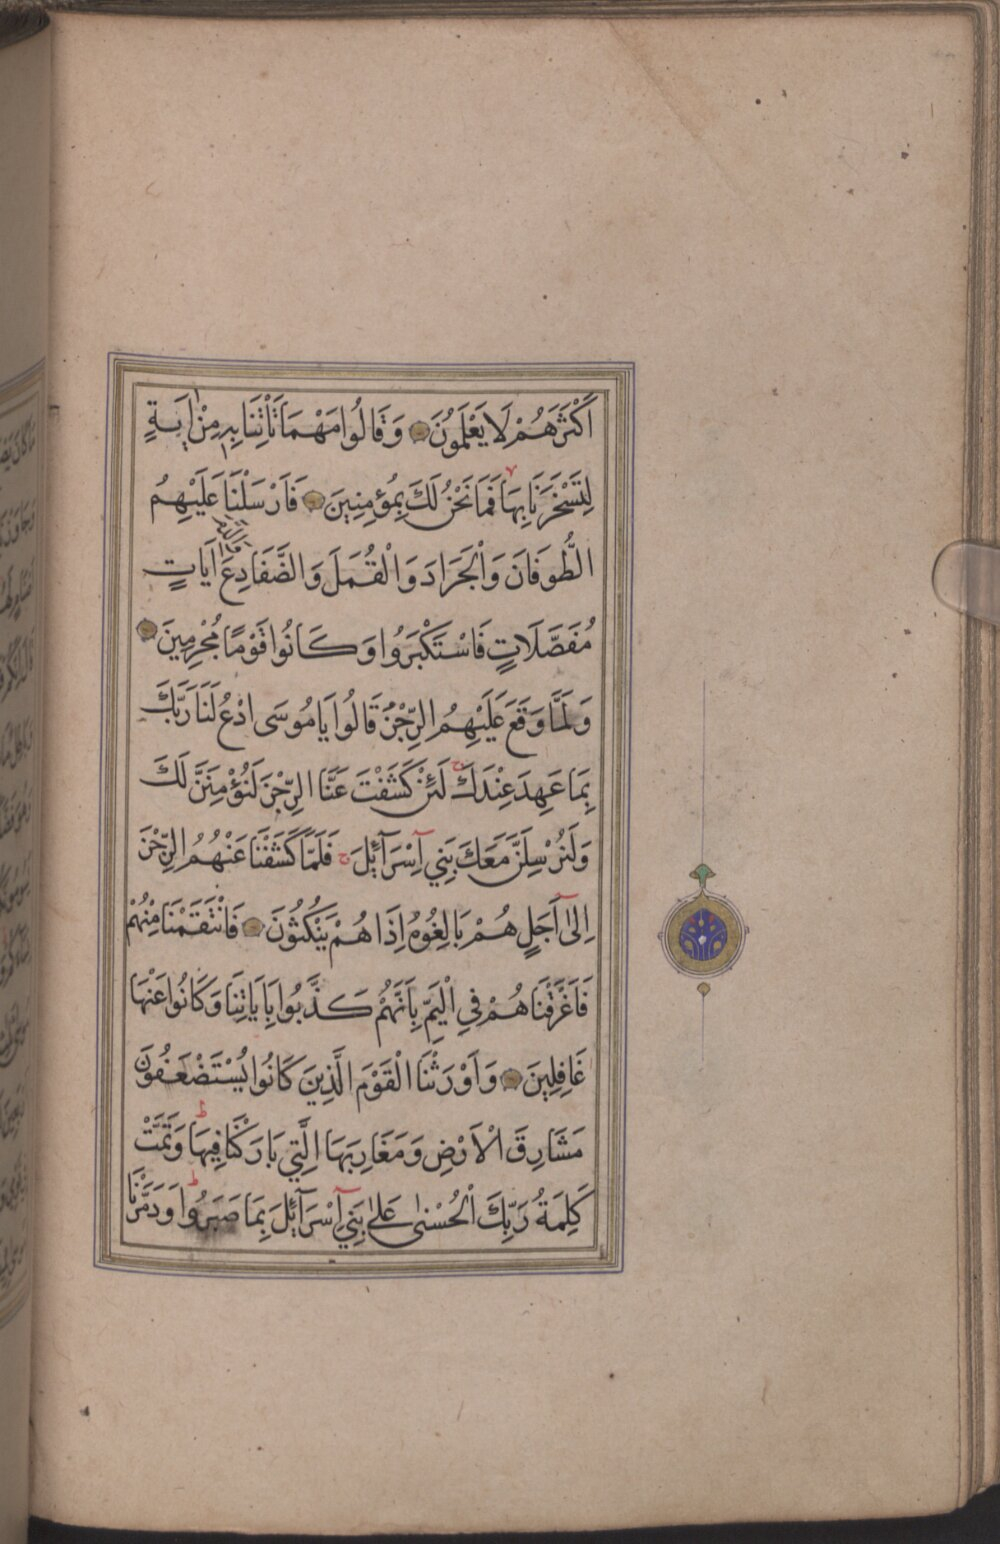 اَكْثَرَهُمْ لَا يَعْلَمُونَ وَقَالُوا مَهْمَا تَأْتِنَا بِهِ مِنْ اٰيَةٍ
لِتَسْحَرَنَا بِهَا فَمَا نَحْنُ لَكَ بِمُؤْمِنِينَ فَاَرْسَلْنَا عَلَيْهِمُ
الطُّوفَانَ وَالْجَرَادَ وَالْقُمَّلَ وَالضَّفَادِعَ وَالدَّمَ اٰيَاتٍ
مُفَصَّلَاتٍ فَاسْتَكْبَرُوا وَكَانُوا قَوْمًا مُجْرِمِينَ
وَلَمَّا وَقَعَ عَلَيْهِمُ الرِّجْزُ قَالُوا يَا مُوسَى ادْعُ لَنَا رَبَّكَ
بِمَا عَهِدَ عِنْدَكَ ج لَئِنْ كَشَفْتَ عَنَّا الرِّجْزَ لَنُؤْمِنَنَّ لَكَ
وَلَنُرْسِلَنَّ مَعَكَ بَنِي اِسْرَآئِلَ ج فَلَمَّا كَشَفْنَا عَنْهُمُ الرِّجْزَ
اِلٰى اَجَلٍ هُمْ بَالِغُوهُ اِذَا هُمْ يَنْكُثُونَ فَانْتَقَمْنَا مِنْهُمْ
فَاَغْرَقْنَاهُمْ فِي الْيَمِّ بِاَنَّهُمْ كَذَّبُوا بِاٰيَاتِنَا وَكَانُوا عَنْهَا
غَافِلِينَ وَاَوْرَثْنَا الْقَوْمَ الَّذِينَ كَانُوا يُسْتَضْعَفُونَ
مَشَارِقَ الْاَرْضِ وَمَغَارِبَهَا الَّتِي بَارَكْنَا فِيهَا ط وَتَمَّتْ
كَلِمَةُ رَبِّكَ الْحُسْنٰى عَلٰى بَنِي اِسْرَآئِلَ بِمَا صَبَرُوا ط وَدَمَّرْنَا